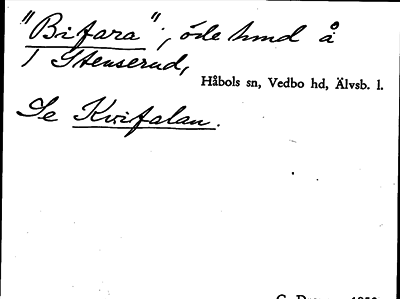 "Bifara", öde hmd å
1 Stenserud,
Håbols sn, Vedbo hd, Älvsb. l.
Se Kvifalan.